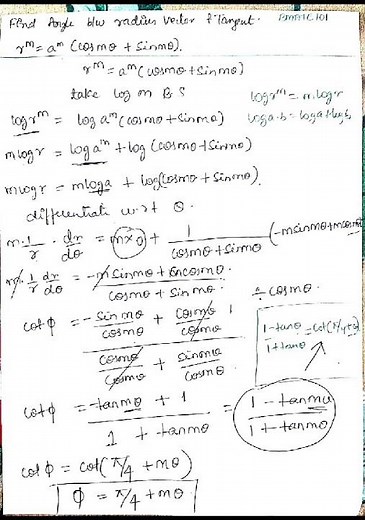 Find Angle b/w radius Vector & Tangent. BMATC101
r^m = a^m (cosmθ + sinmθ).
r^m = a^m (cosmθ + sinmθ)
take log on B S
log r^m = m·log r
log r^m = log a^m (cosmθ + sinmθ)
log a·b = log a + log b
m log r = log a^m + log (cosmθ + sinmθ)
m log r = m log a + log (cosmθ + sinmθ).
differentiate w.r.t θ.
m·1/r · dr/dθ = m×0 + 1/(cosmθ + sinmθ) (-m sinmθ + m cosmθ)
m·1/r dr/dθ = (-m sinmθ + m cosmθ)/(cosmθ + sinmθ). ÷ cosmθ.
cot φ = (-sinmθ/cosmθ + cosmθ/cosmθ 1)/(cosmθ/cosmθ + sinmθ/cosmθ)
(1 - tanθ)/(1 + tanθ) = cot(π/4 + θ)
cot φ = (-tanmθ + 1)/(1 + tanmθ) = (1 - tanmθ)/(1 + tanmθ)
cot φ = cot(π/4 + mθ)
φ = π/4 + mθ.